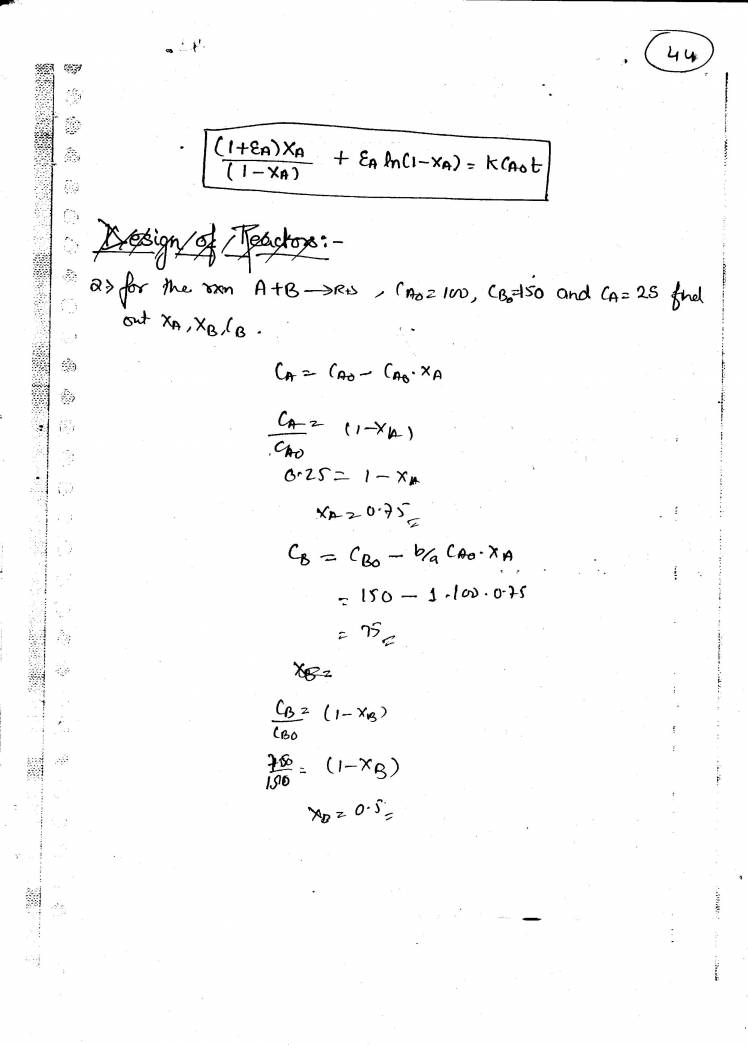 44
(1+εA)XA / (1-XA) + εA ln(1-XA) = KCA0t
Design of Reactors:-
Q> for the rxn A+B→R+S, CA0=100, CB0=150 and CA=25 find
out XA, XB, CB.
CA = CA0 - CA0·XA
CA/CA0 = (1-XA)
0.25 = 1-XA
XA = 0.75
CB = CB0 - b/a CA0·XA
= 150 - 1·100·0.75
= 75
XB=
CB/CB0 = (1-XB)
/150 = (1-XB)
XB = 0.5